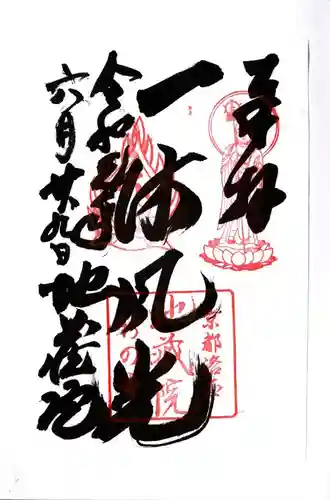 奉拝
京都洛西
一
風光
地蔵院
竹の
令和
地蔵院
六月廿九日